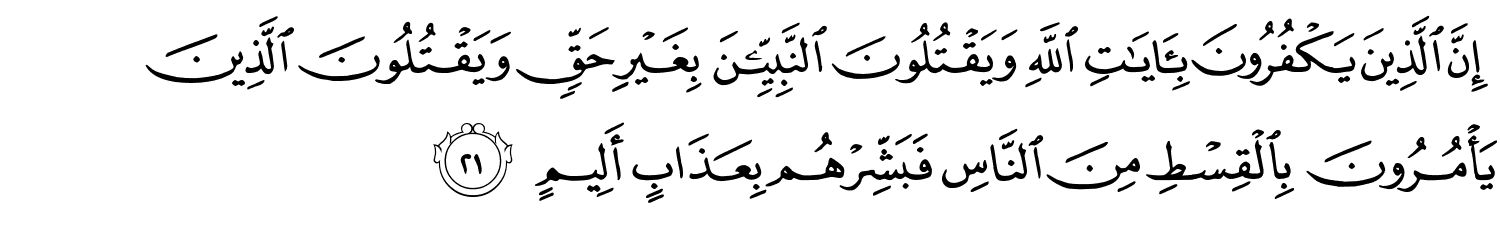 إِنَّ ٱلَّذِينَ يَكْفُرُونَ بِـَٔايَـٰتِ ٱللَّهِ وَيَقْتُلُونَ ٱلنَّبِيِّـۧنَ بِغَيْرِ حَقٍّ وَيَقْتُلُونَ ٱلَّذِينَ
يَأْمُرُونَ بِٱلْقِسْطِ مِنَ ٱلنَّاسِ فَبَشِّرْهُم بِعَذَابٍ أَلِيمٍ ٢١